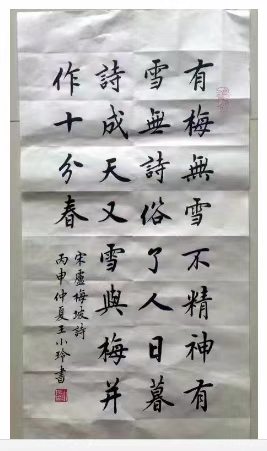 有梅無雪不精神有
雪無詩俗了人日暮
詩成天又雪與梅并
作十分春
宋盧梅坡詩
丙申仲夏王小玲書